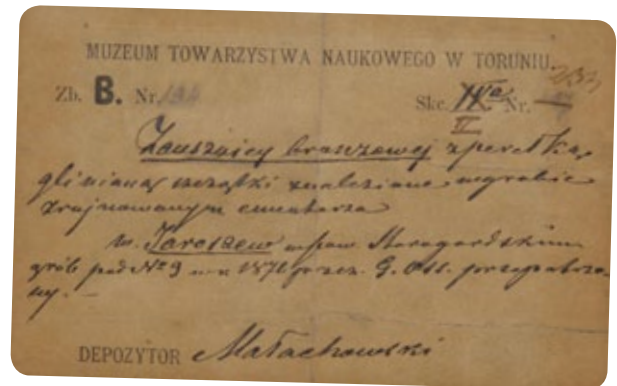 MUZEUM TOWARZYSTWA NAUKOWEGO W TORUNIU.
Zb. B. Nr. Skc. IVa Nr.
II
Zausznicy bronzowej z perełką
glinianą szczątki znalezione w grobie
zrujnowanym cmentarza
w. Jaroszew w pow. Starogardskim
grób pod No 9 w r. 187 przez G. Oss. przepatrzo-
ny. –
DEPOZYTOR Małachowski